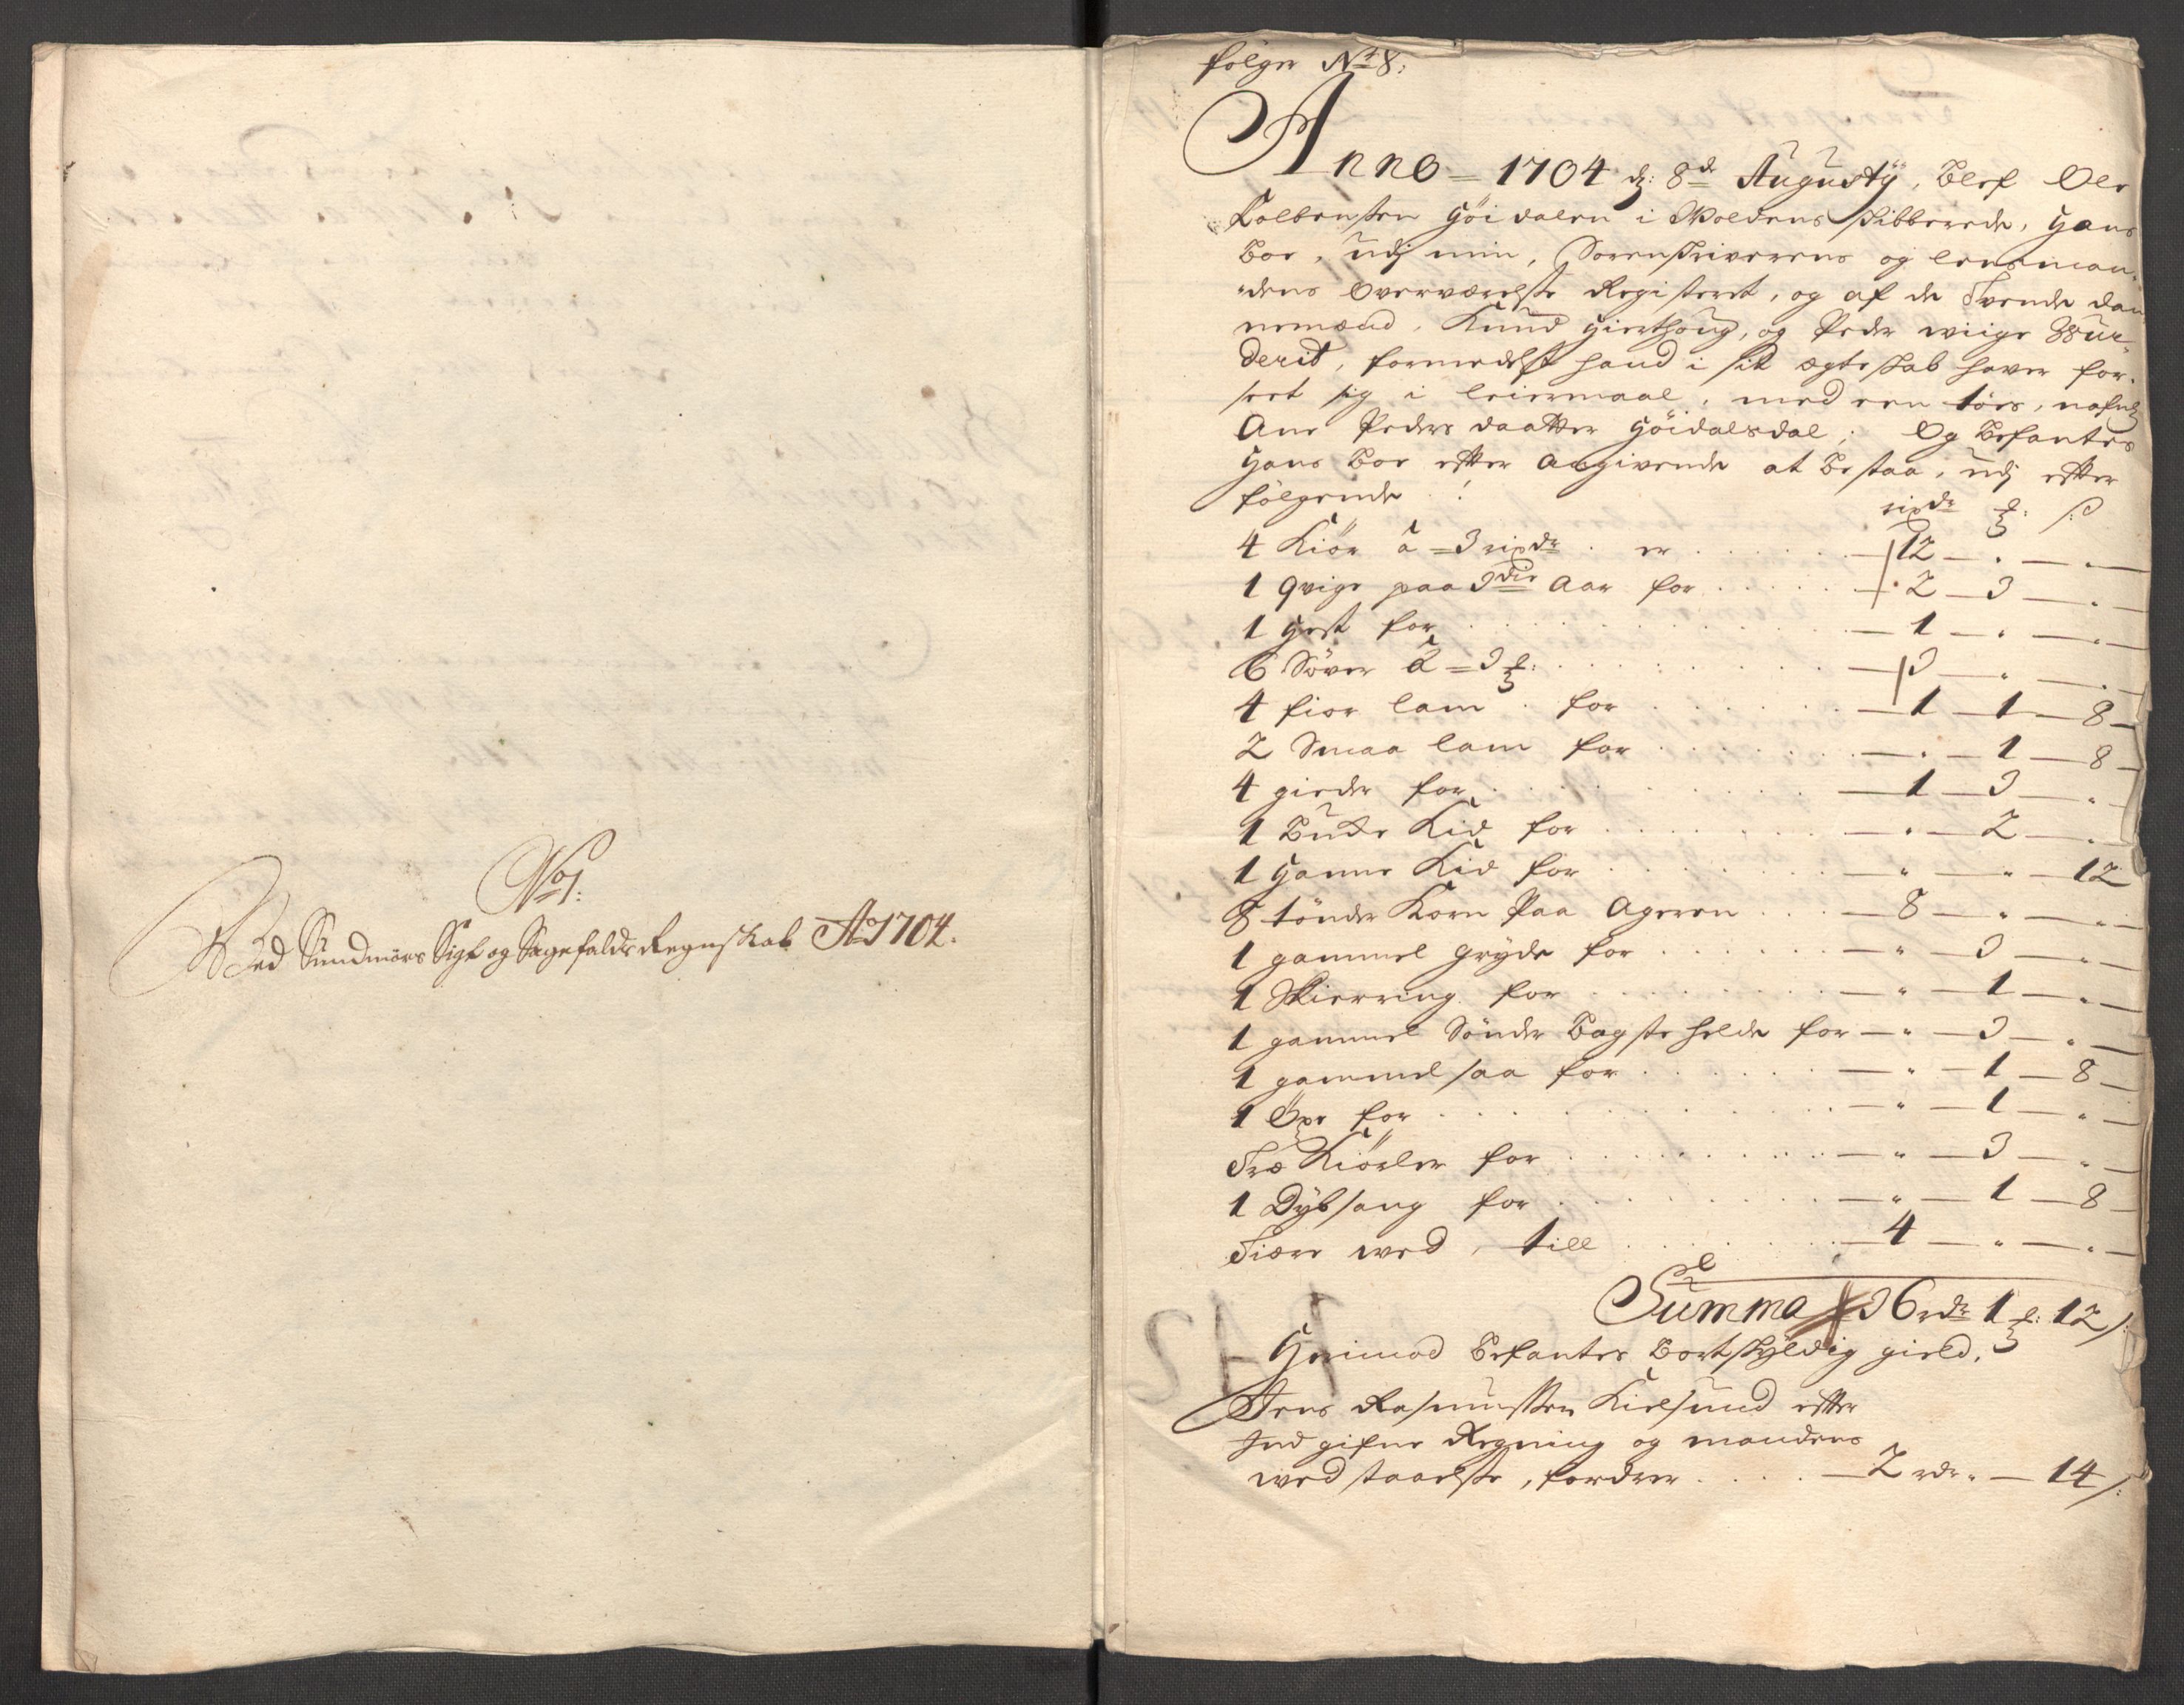 No 1:
Ved Sundmørs Sigt og Sagefalds Regnskab Ao 1704.
følger No 8:
Anno 1704 d: 8de Augustij, blef Ole
Colbensen Høidalen i Woldens schibbrede, Hans
Boe, udj min, Sorenskriverens og lensman-
dens Overværelse Registeret, og af de Tvende dan
nemænd, Knud Hierthoug, og Peder wiige Wur-
derit, formedelst hand i sit ægteskab haver for-
seet sig i leiermaal, med een tøes, nafnl
Ane Peders daatter Høidalsdal; Og befantes
Hans Boe efter Angivende at bestaa, udj efter
følgende:
rixdr ℔: s
4 Kiör â 3 rixdr er 12 - " - "
1 qvige paa 3die Aar for 2 - 3 - "
1 Hest for 1 - " - "
6 Söver â 3 ℔: 3 - " - "
4 fior lam for 1 - 1 - 8
2 Smaa lam for " - 1 - 8
4 gieder for 1 - 3 - "
1 Bucke Kid for " - 2 - "
1 Hanne Kid for " - " - 12
8 tönder Korn Paa Ageren 8 - " - "
1 gammel gryde for " - 3 - "
1 Skierring for " - 1 - "
1 gammel Sönder Bagste helde for " - 3 - "
1 gammel saa for " - 1 - 8
1 Öxe for " - 1 - "
Træ Kiörler for " - 3 - "
1 Dybsang for " - 1 - 8
Tiære wed, till 4 - " - "
Summa 36 rdr 1 ℔: 12 s:
Herimod befantes bortskyldig gield.
Jens Rasmussen Kielsund efter
Indgifne Regning og mandens
wedstaaelse, fordrer 2 rdr " - 14 s: